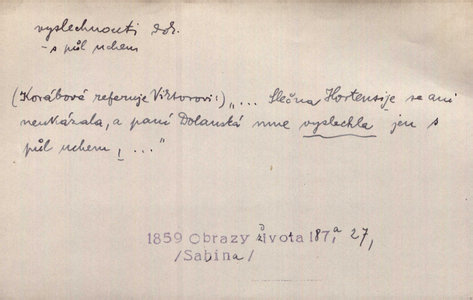 vyslechnouti dok.
- s půl uchem
(Korábová referuje Viktorovi:) „... Slečna Hortensije se ani
neukázala, a paní Dolanská mne vyslechla jen s
půl uchem, ..."
1859 Obrazy života 187, 27,
/Sabina/